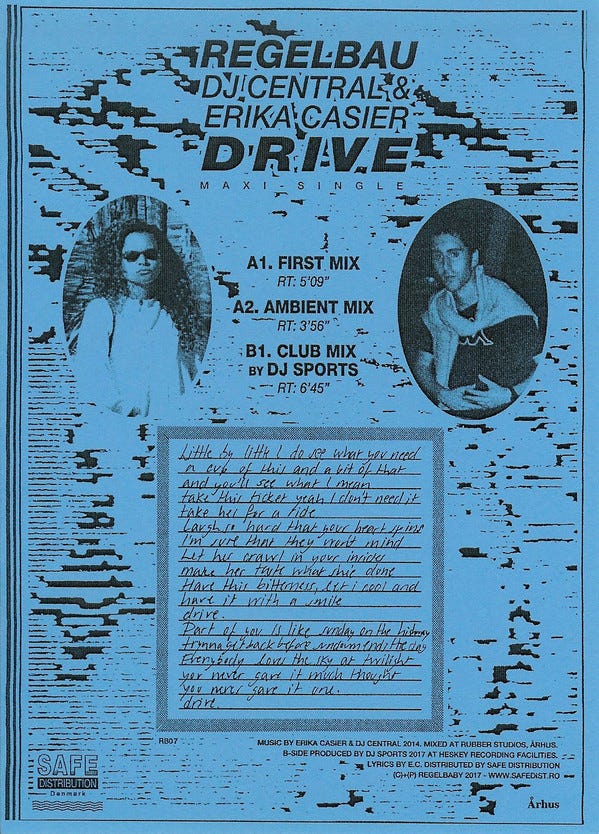 REGELBAU
DJ CENTRAL &
ERIKA CASIER
DRIVE
MAXI-SINGLE
A1. FIRST MIX
RT: 5'09"
A2. AMBIENT MIX
RT: 3'56"
B1. CLUB MIX
BY DJ SPORTS
RT: 6'45"
Little by little I do see what you need
a cup of this and a bit of that
and you'll see what I mean
take this ticket yeah I don't need it
take her for a ride
Laugh so hard that your heart
I'm sure that they won't mind
Let her crawl in your
make her taste what she done
Have this bitterness, let it cool and
have it with a smile
drive.
Part of you is like sunday on the
back before
Everybody loves the sky at twilight
you never gave it much thought
you never gave it one.
drive.
RB07
MUSIC BY ERIKA CASIER & DJ CENTRAL 2014. MIXED AT RUBBER STUDIOS, ÅRHUS.
B-SIDE PRODUCED BY DJ SPORTS 2017 AT HESKEY RECORDING FACILITIES.
LYRICS BY E.C. DISTRIBUTED BY SAFE DISTRIBUTION
(C)+(P) REGELBABY 2017 - WWW.SAFEDIST.RO
SAFE
DISTRIBUTION
Denmark
Århus